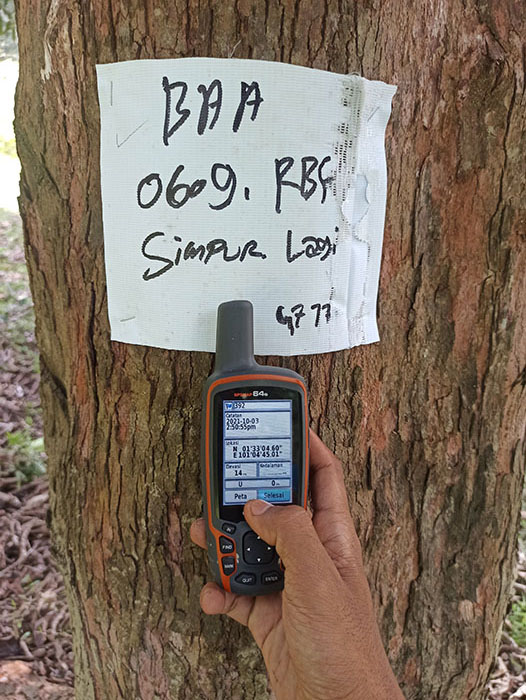 BAA
0609. RBF
Simpur Laki
GPSMAP 64s
392
Catatan
2021-10-03
2:50:55pm
Lokasi
N 01°33'04.60"
E 101°04'45.01"
Elevasi Kedalaman
14
U 0
Peta Selesai
IN
FIND
MARK
QUIT ENTER